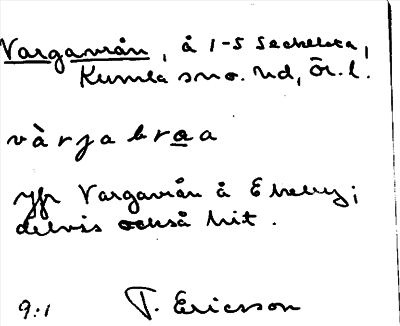 Vargavrån, å 1-5 Sechelsta,
Kumla sn o. hd, Ör. l.
vàrjabraa
Jfr Vargavrån å Ekeby;
delvis också hit.
9:1 T. Ericsson